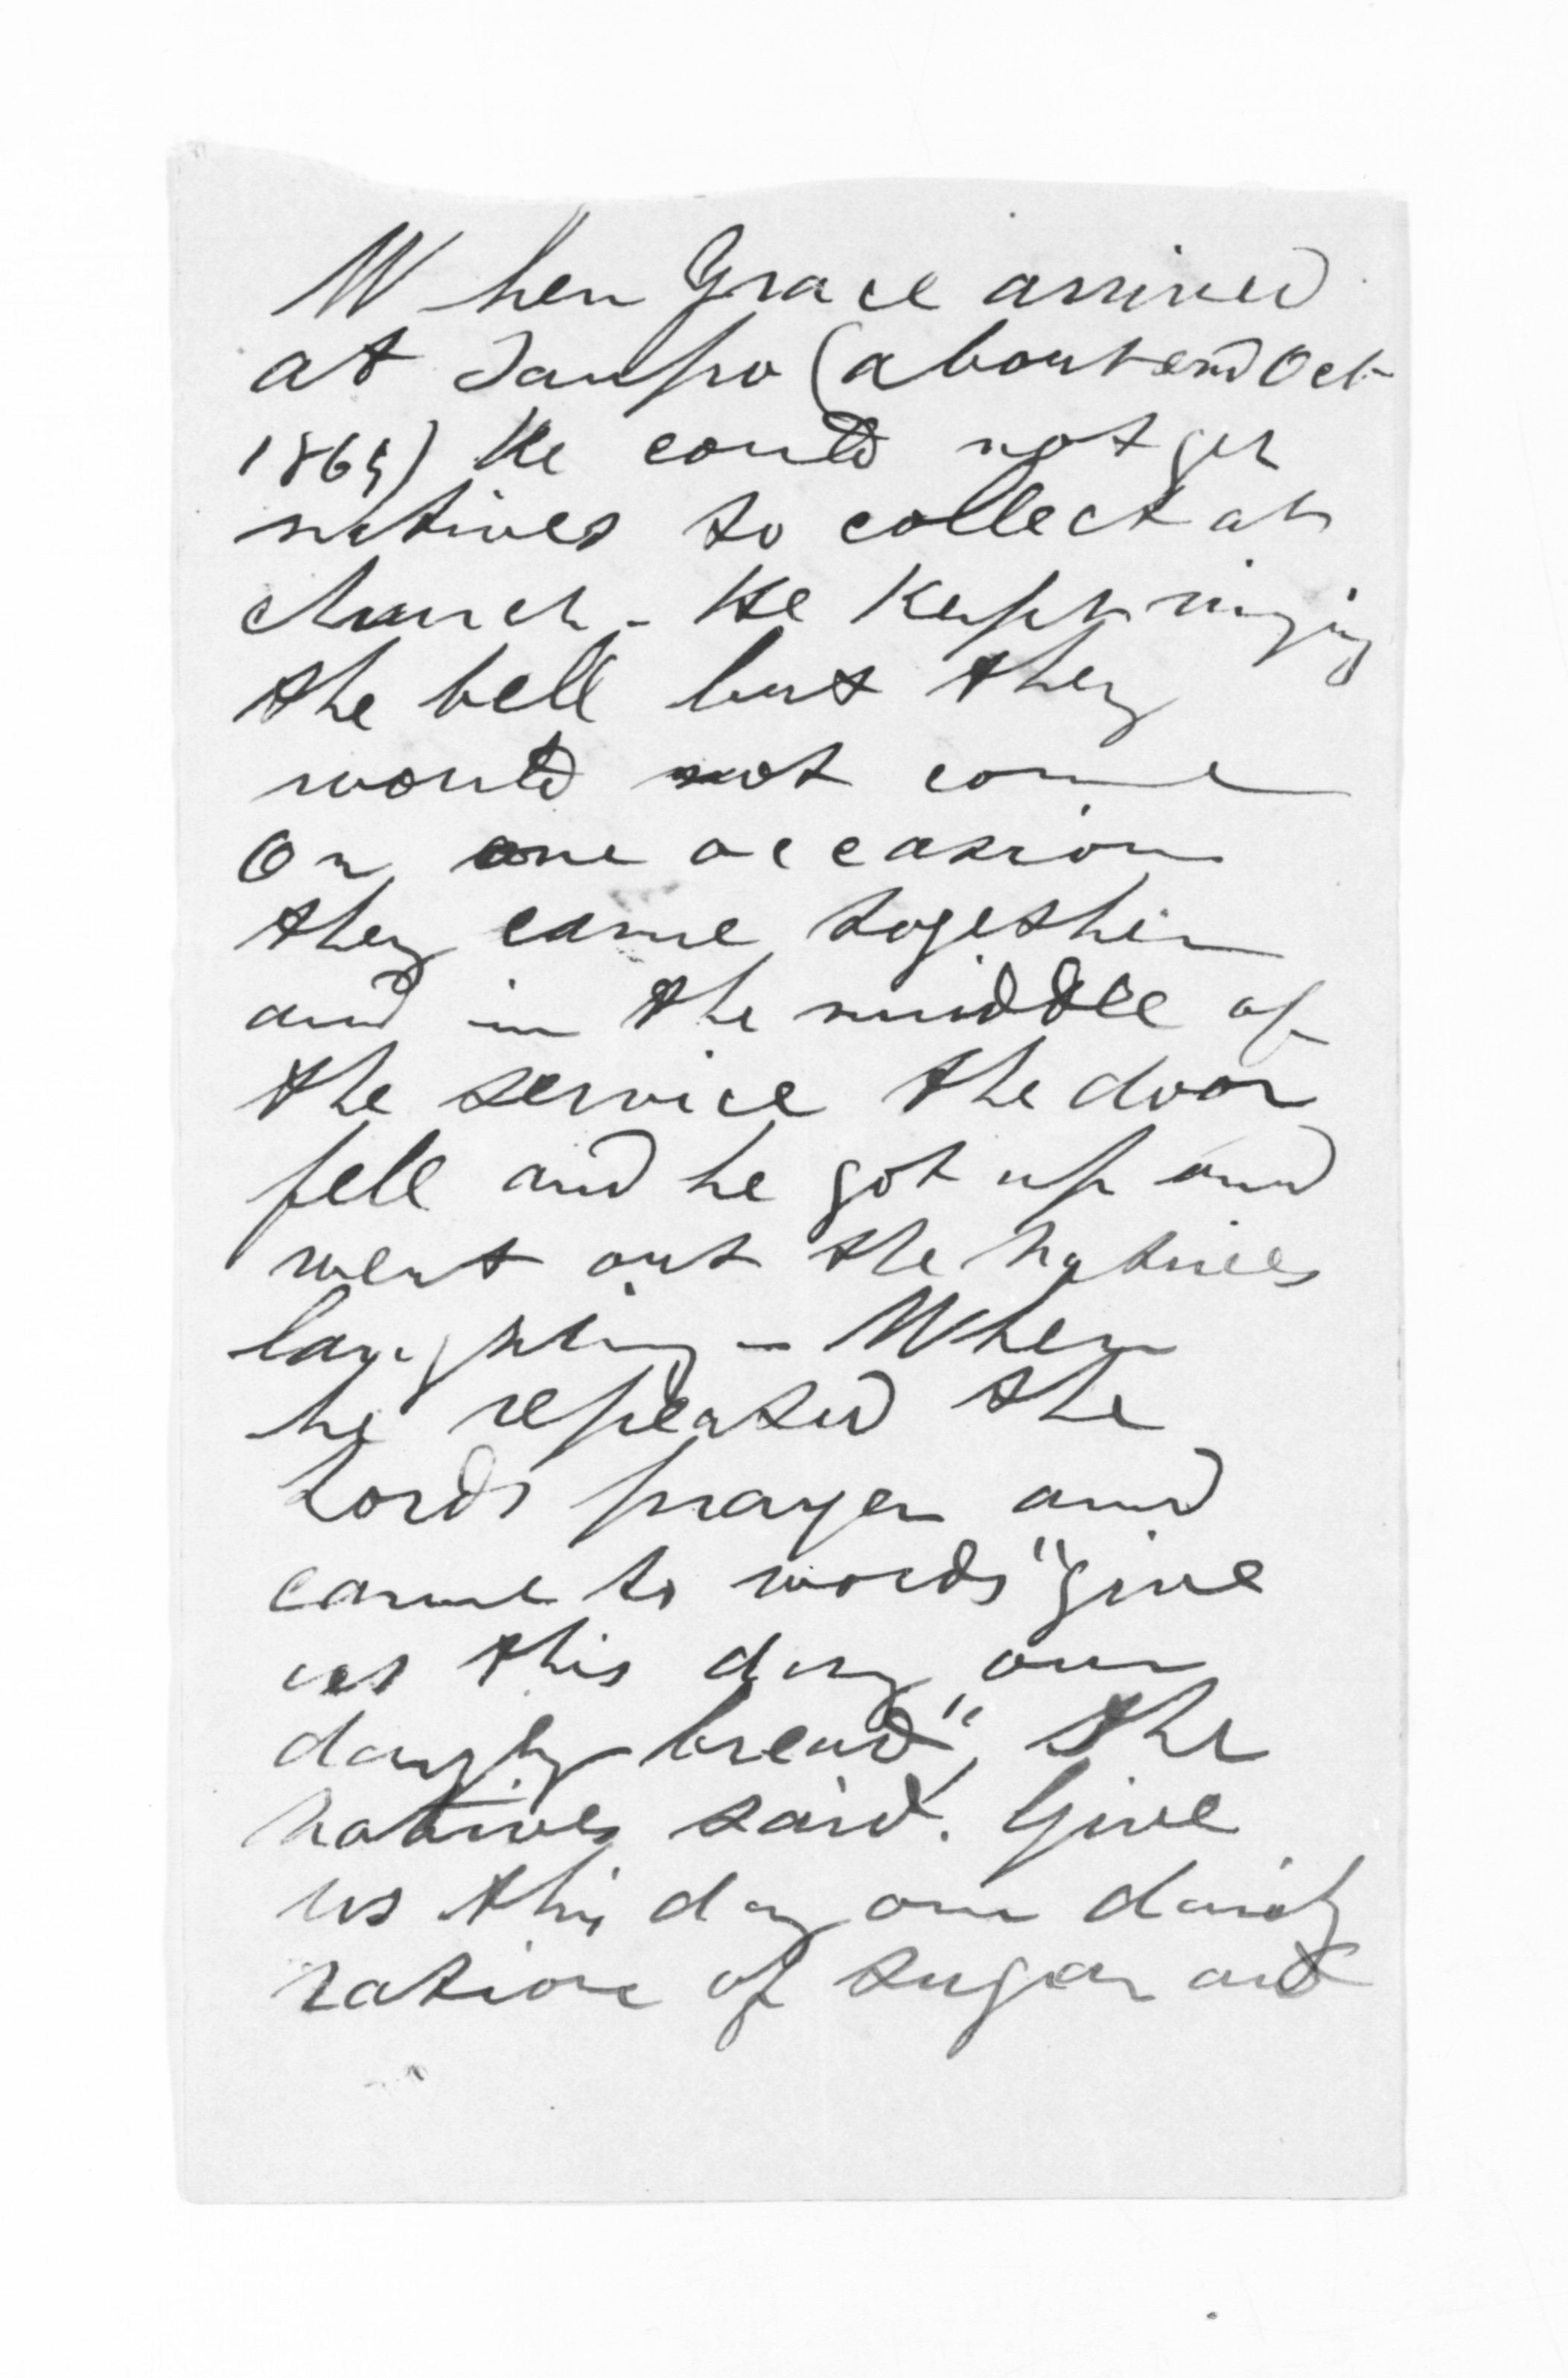 When Grace arrived
at Taupo (about end Oct
1865) He could not get
natives to collect at
church - He kept ringing
the bell but they
would not come
On one occasion
they came together
and in the middle of
the service the door
fell and he got up and
went out the natives
laughing - When
he repeated the
Lords prayer and
came to words "give
us this day our
dayly bread", the
natives said. Give
us this day our daily
ration of sugar and